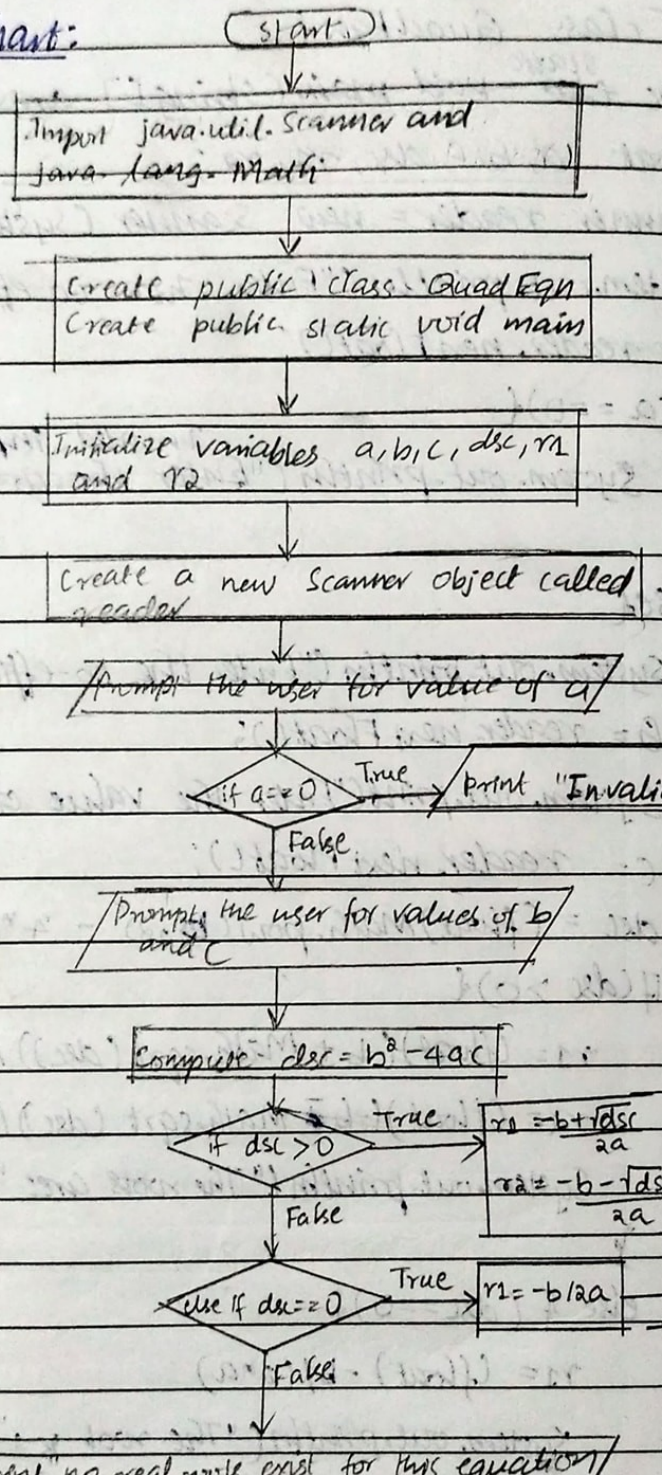 hart:
start
Import java.util.Scanner and
java.lang.Math
Create public class QuadEqn
Create public static void main
Initialize variables a,b,c, dsc, r1
and r2
Create a new Scanner object called
reader
Prompt the user for value of a
if a==0
True
Print "Invali
False
Prompt the user for values of b
and c
Compute dsc = b² - 4ac
if dsc > 0
True
r1 = -b+√dsc
2a
r2 = -b-√ds
2a
False
else if dsc==0
True
r1 = -b/2a
False
"no real roots exist for this equation